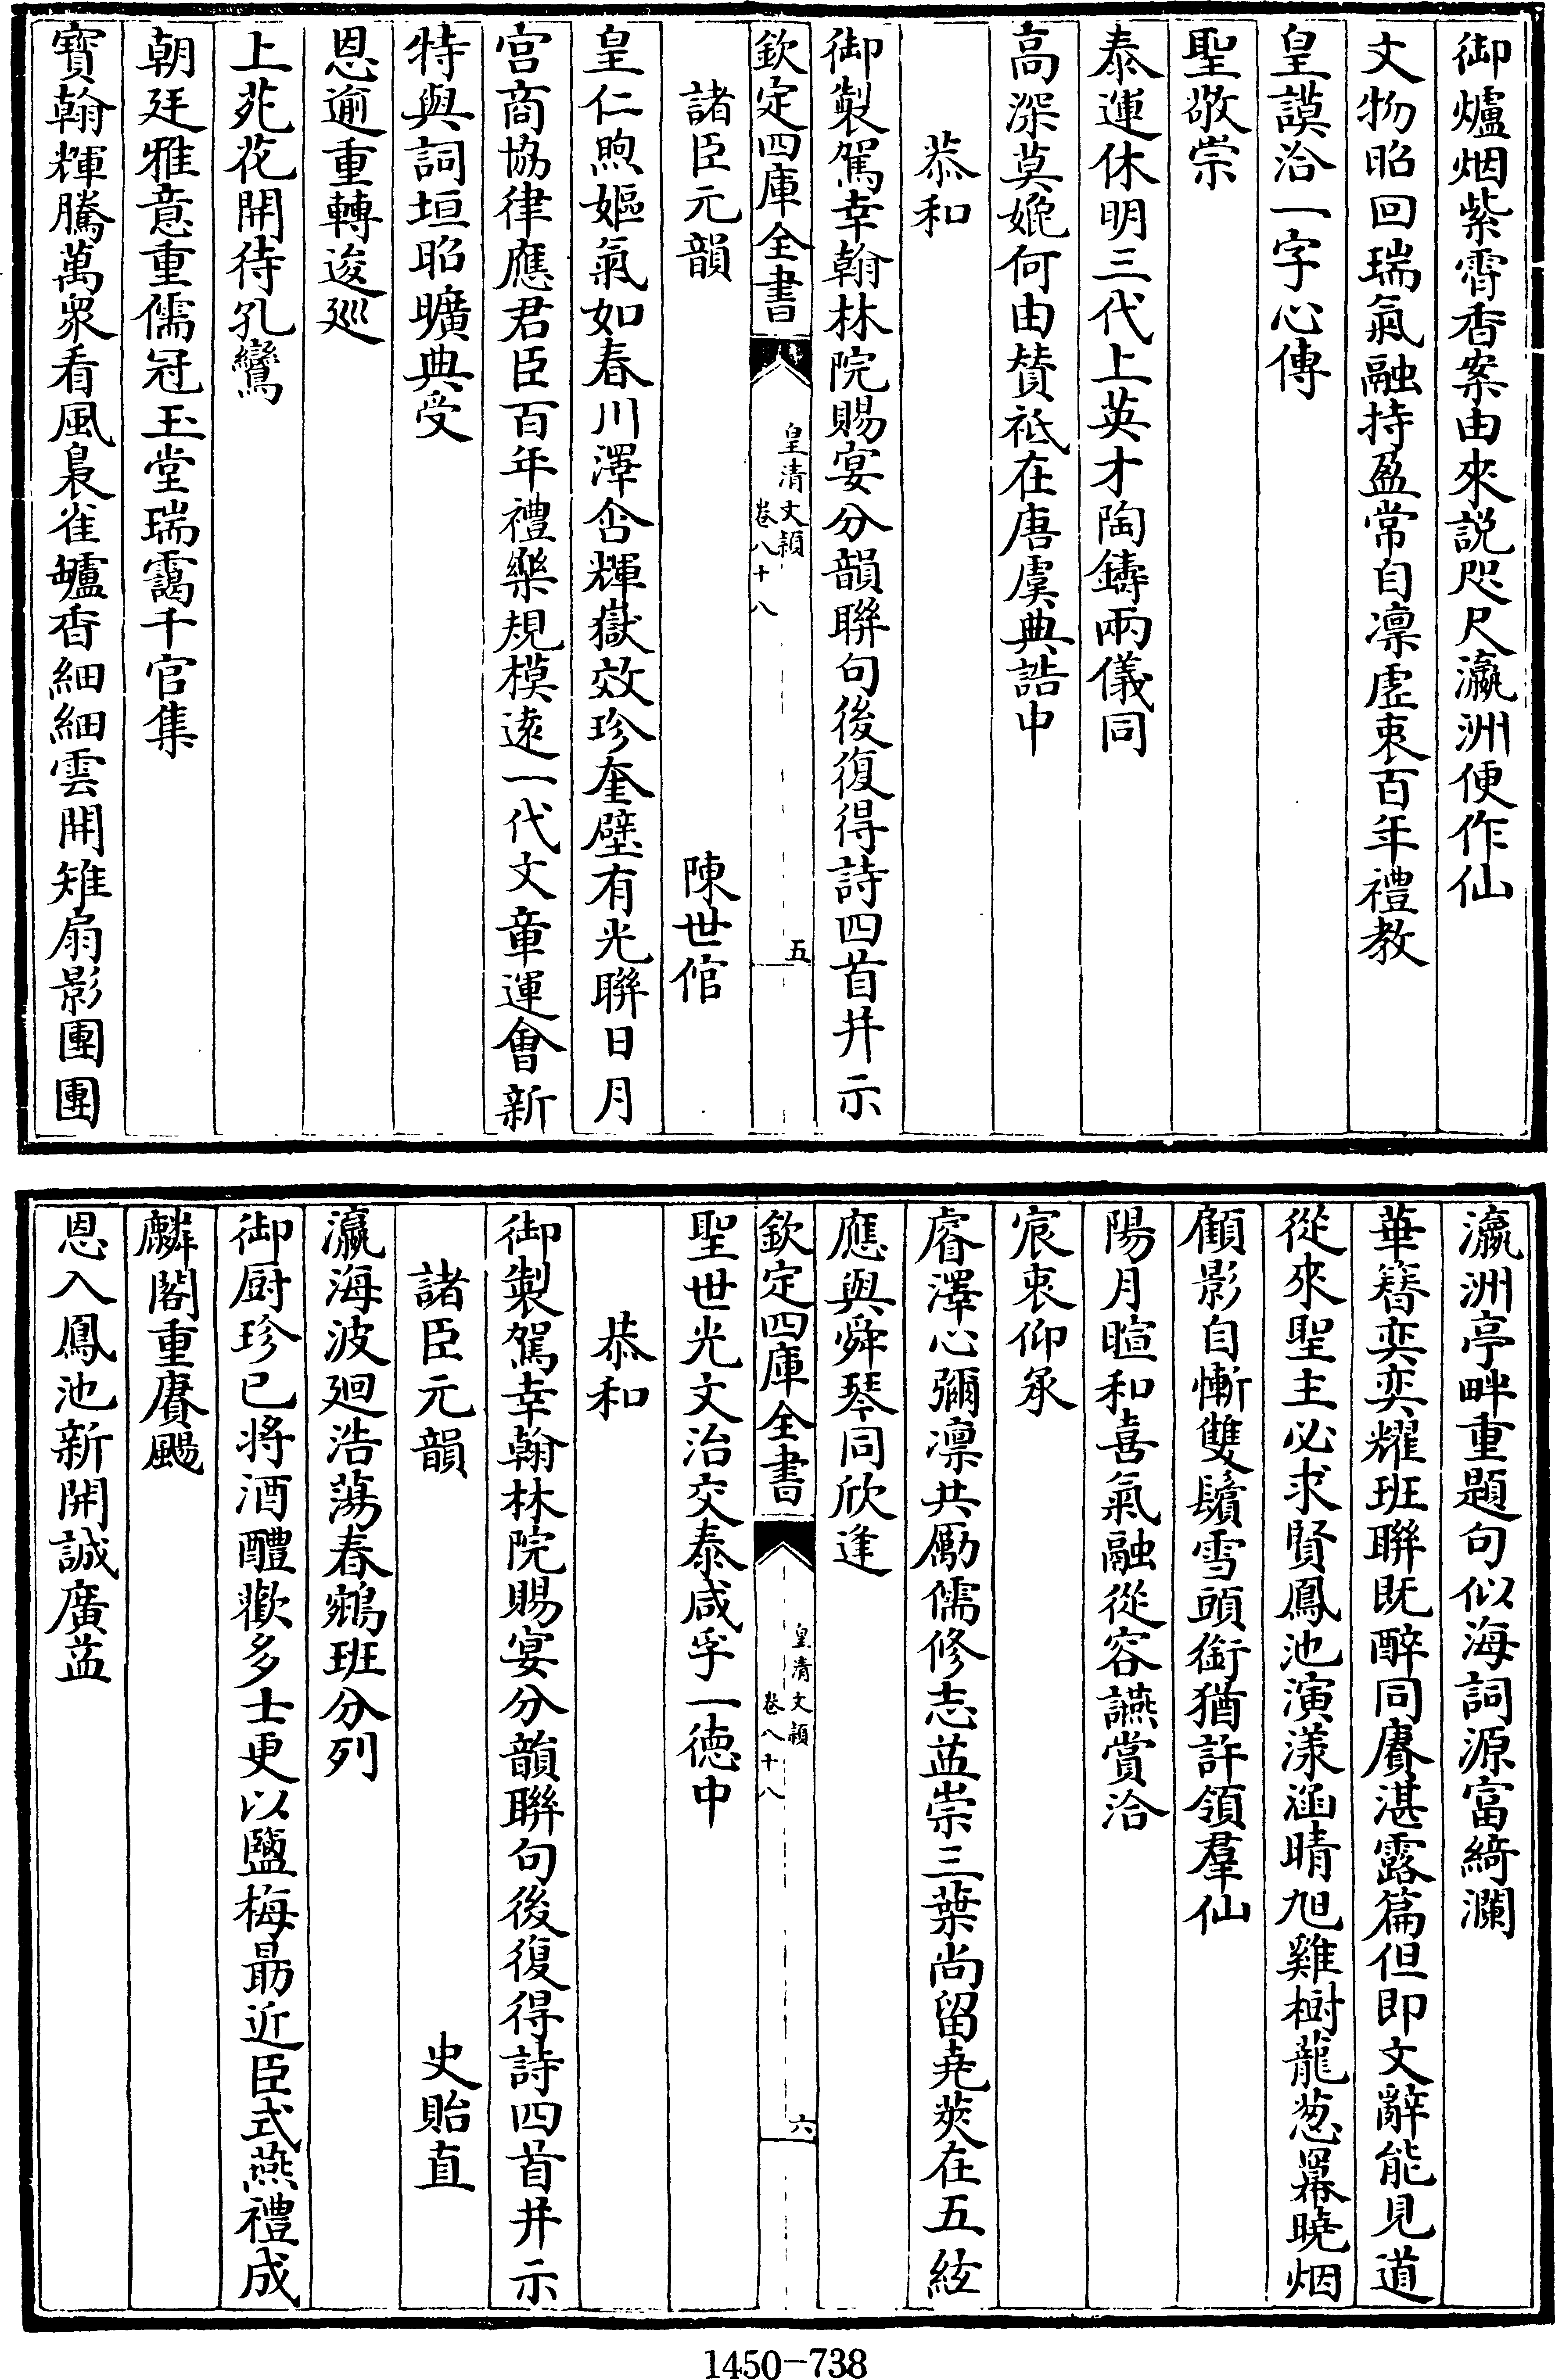 御爐烟紫霄香案由來説咫尺瀛洲便作仙
文物昭回瑞氣融持盈常自凛虚衷百年禮教
皇謨洽一字心傳
聖敬崇
泰運休明三代上英才陶鑄兩儀同
高深莫媲何由賛祗在唐虞典誥中
恭和
御製駕幸翰林院賜宴分韻聯句後復得詩四首并示
欽定四庫全書
皇清文穎
卷八十八
五
諸臣元韻
陳世倌
皇仁煦嫗氣如春川澤含輝嶽效珍奎壁有光聯日月
宫商協律應君臣百年禮樂規模逺一代文章運會新
特與詞垣昭曠典受
恩逾重轉逡廵
上苑花開待孔鸞
朝廷雅意重儒冠玉堂瑞靄千官集
寳翰輝騰萬衆看風裊雀罏香細細雲開雉扇影團團
瀛洲亭畔重題句似海詞源富綺瀾
華簪奕奕耀班聯既醉同賡湛露篇但即文辭能見道
從來聖主必求賢鳳池演漾涵晴旭雞樹龍葱羃曉烟
顧影自慚雙鬢雪頭銜猶許領羣仙
陽月暄和喜氣融從容讌賞洽
宸衷仰承
睿澤心彌凛共勵儒修志益崇三葉尚留堯莢在五絃
應與舜琴同欣逢
欽定四庫全書
皇清文穎
卷八十八
六
聖世光文治交泰咸孚一徳中
恭和
御製駕幸翰林院賜宴分韻聯句後復得詩四首并示
諸臣元韻
史貽直
瀛海波迴浩蕩春鵷班分列
御厨珍已將酒醴歡多士更以鹽梅勗近臣式燕禮成
麟閣重賡颺
恩入鳳池新開誠廣益
1450-738